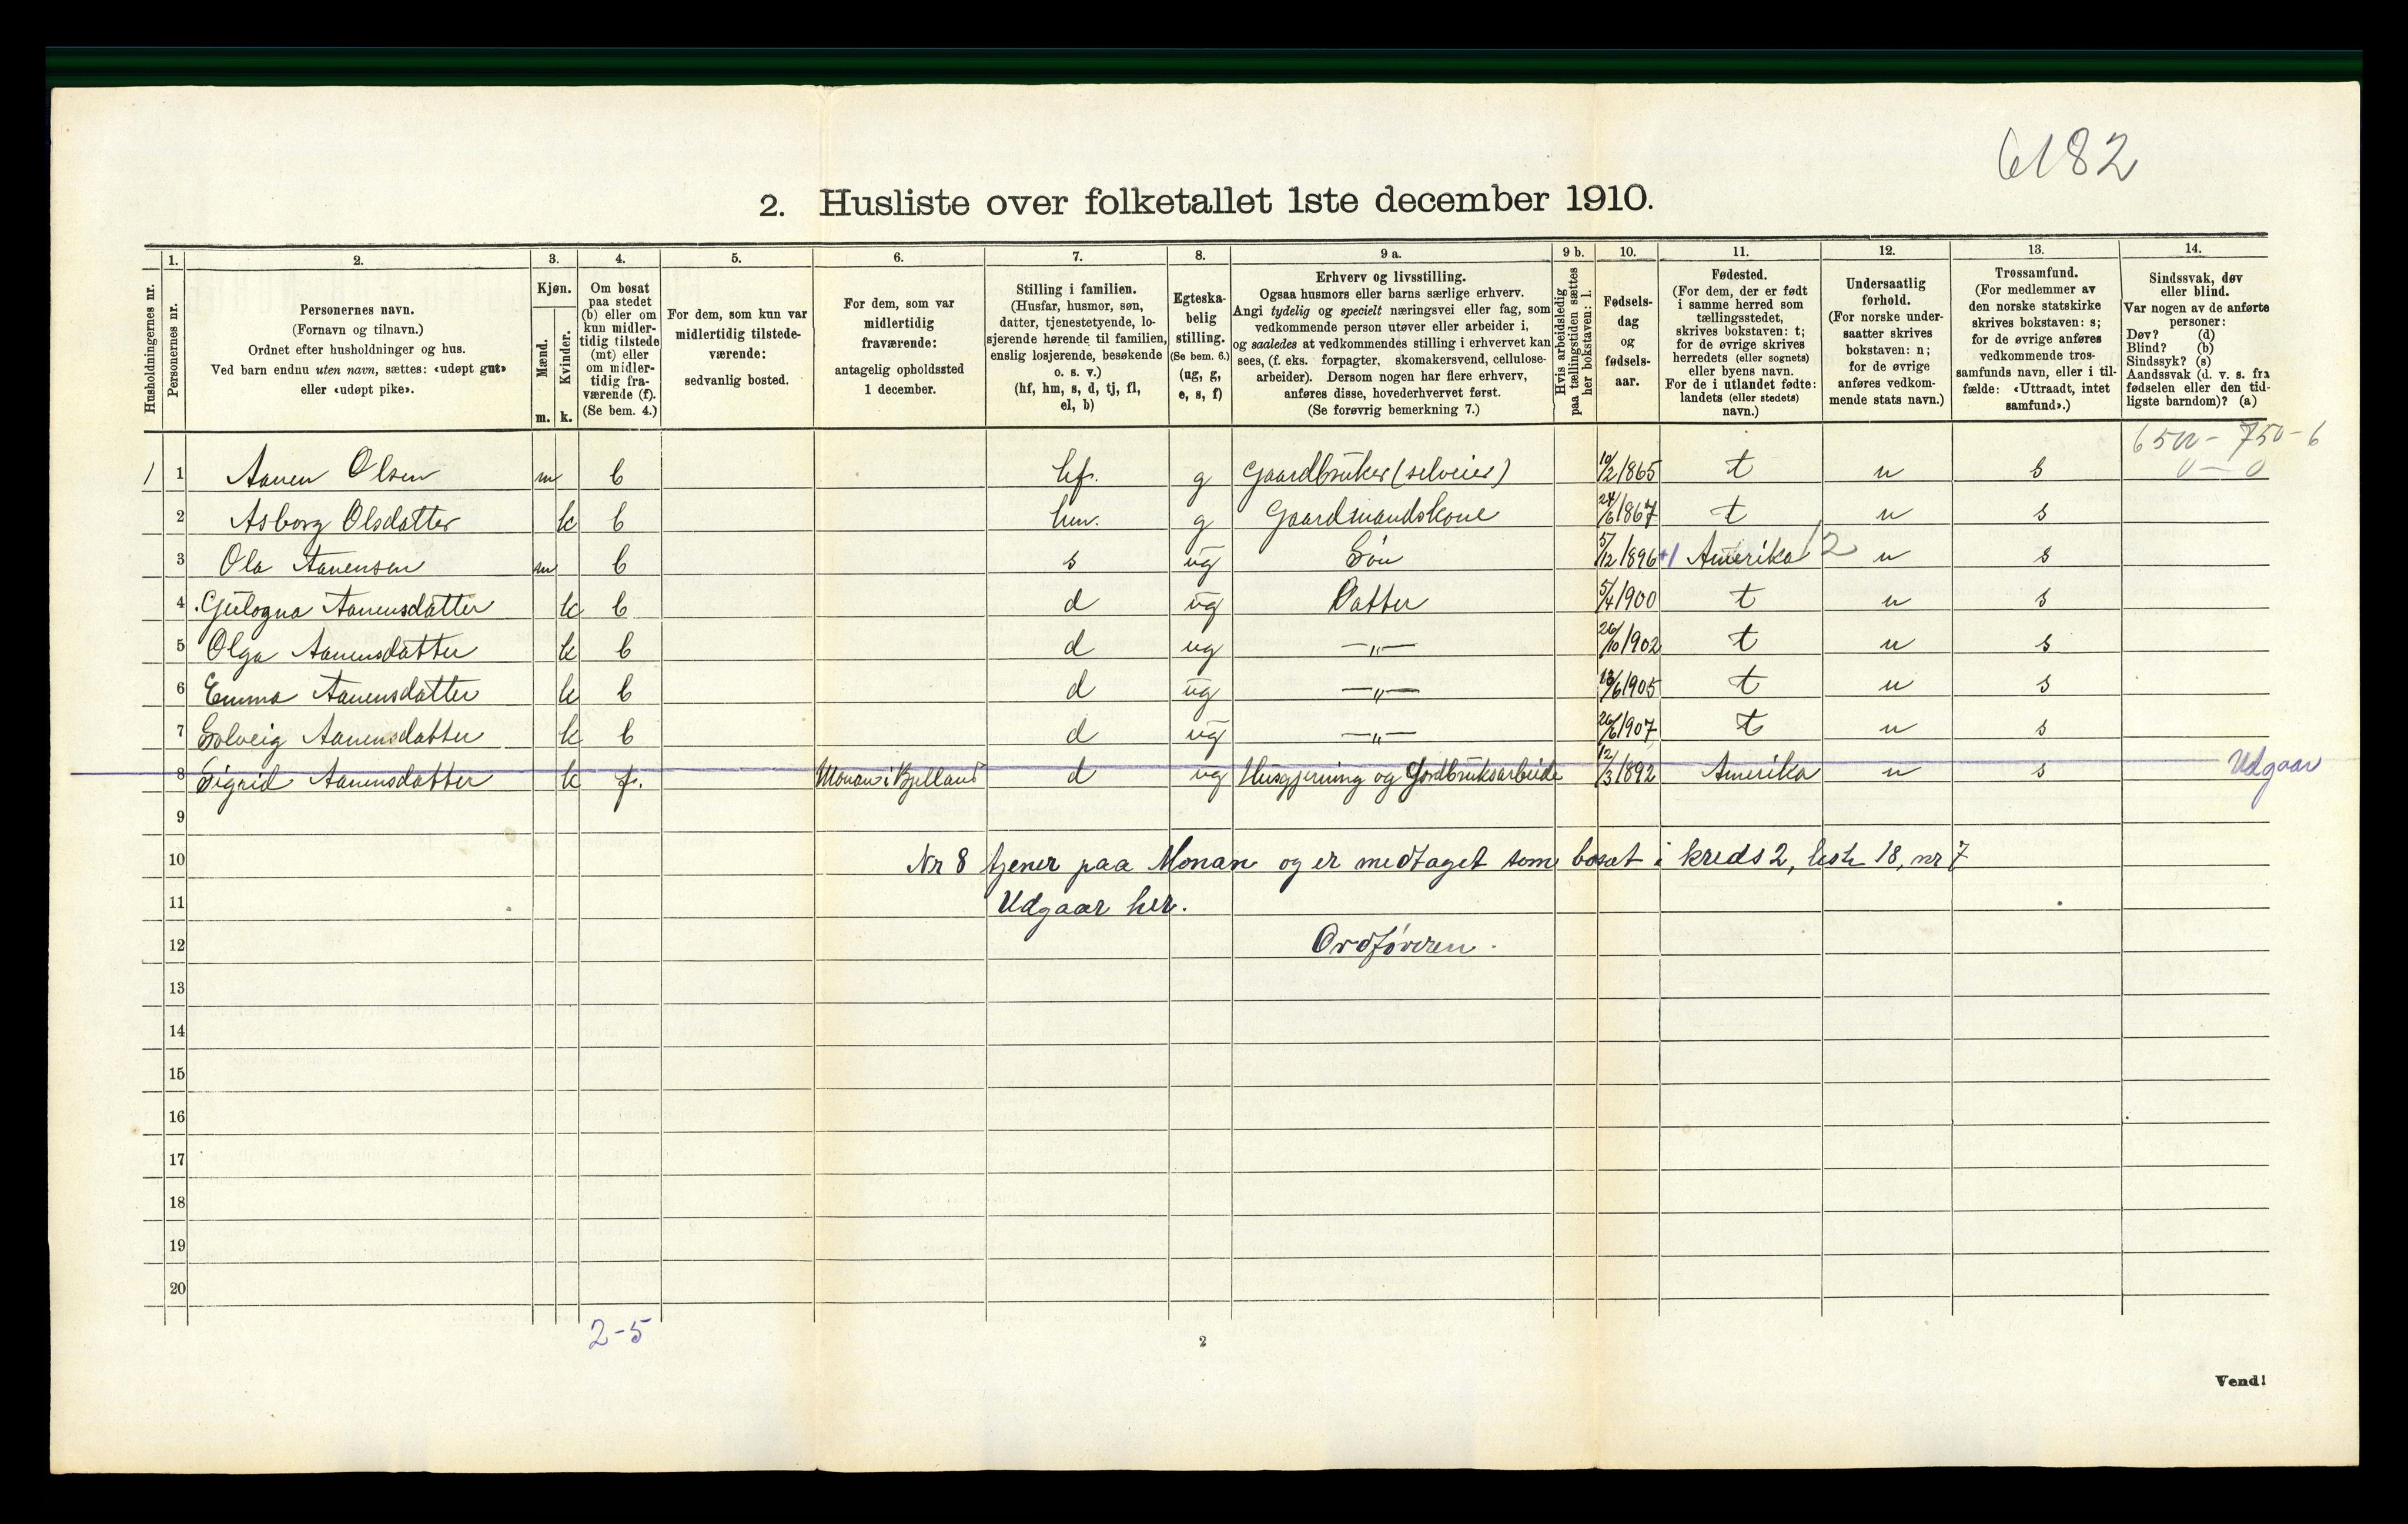 6182
2. Husliste over folketallet 1ste december 1910.
Husholdningernes nr.
1. Personernes nr.
2. Personernes navn.
(Fornavn og tilnavn.)
Ordnet efter husholdninger og hus.
Ved barn endnu uten navn, sættes: «udøpt gut»
eller «udøpt pike».
3. Kjøn.
Mænd. m.
Kvinder. k.
4. Om bosat
paa stedet
(b) eller om
kun midler-
tidig tilstede
(mt) eller
om midler-
tidig fra-
værende (f).
(Se bem. 4.)
5. For dem, som kun var
midlertidig tilstede-
værende:
sedvanlig bosted.
6. For dem, som var
midlertidig
fraværende:
antagelig opholdssted
1 december.
7. Stilling i familien.
(Husfar, husmor, søn,
datter, tjenestetyende, lo-
sjerende hørende til familien,
enslig losjerende, besøkende
o. s. v.)
(hf, hm, s, d, tj, fl,
el, b)
8. Egteska-
belig
stilling.
(Se bem. 6.)
(ug, g,
e, s, f)
9 a. Erhverv og livsstilling.
Ogsaa husmors eller barns særlige erhverv.
Angi tydelig og specielt næringsvei eller fag, som
vedkommende person utøver eller arbeider i,
og saaledes at vedkommendes stilling i erhvervet kan
sees, (f. eks. forpagter, skomakersvend, cellulose-
arbeider). Dersom nogen har flere erhverv,
anføres disse, hovederhvervet først.
(Se forøvrig bemerkning 7.)
9 b. Hvis arbeidsledig
paa tællingstiden sættes
her bokstaven: l.
10. Fødsels-
dag
og
fødsels-
aar.
11. Fødested.
(For dem, der er født
i samme herred som
tællingsstedet,
skrives bokstaven: t;
for de øvrige skrives
herredets (eller sognets)
eller byens navn.
For de i utlandet fødte:
landets (eller stedets)
navn.)
12. Undersaatlig
forhold.
(For norske under-
saatter skrives
bokstaven: n;
for de øvrige
anføres vedkom-
mende stats navn.)
13. Trossamfund.
(For medlemmer av
den norske statskirke
skrives bokstaven: s;
for de øvrige anføres
vedkommende tros-
samfunds navn, eller i til-
fælde: «Uttraadt, intet
samfund».)
14. Sindssvak, døv
eller blind.
Var nogen av de anførte
personer:
Døv? (d)
Blind? (b)
Sindssyk? (s)
Aandssvak (d. v. s. fra
fødselen eller den tid-
ligste barndom)? (a)
6500 - 750 - 6
0 - 0
1 1 Aanen Olsen m b hf. g Gaardbruker (selveier) 10/2 1865 t n s
2 Asborg Olsdatter k b hm. g Gaardmandskone 24/6 1867 t n s
3 Ola Aanensen m b s ug Søn 5/12 1896 +1 Amerika 12 n s
4 Gulogna Aanensdatter k b d ug Datter 5/4 1900 t n s
5 Olga Aanensdatter k b d ug —„— 26/10 1902 t n s
6 Emma Aanensdatter k b d ug —„— 13/6 1905 t n s
7 Solveig Aanensdatter k b d ug —„— 26/6 1907 t n s
8 Sigrid Aanensdatter k f. Monan i Bjelland d ug Husgjerning og Jordbruksarbeide 12/3 1892 Amerika n s Udgaar
9
10 Nr 8 tjener paa Monan og er medtaget som bosat i kreds 2, liste 18, nr 7
11 Udgaar her.
12 Ordføreren.
13
14
15
16
17
18
19
20
2-5
2
Vend!